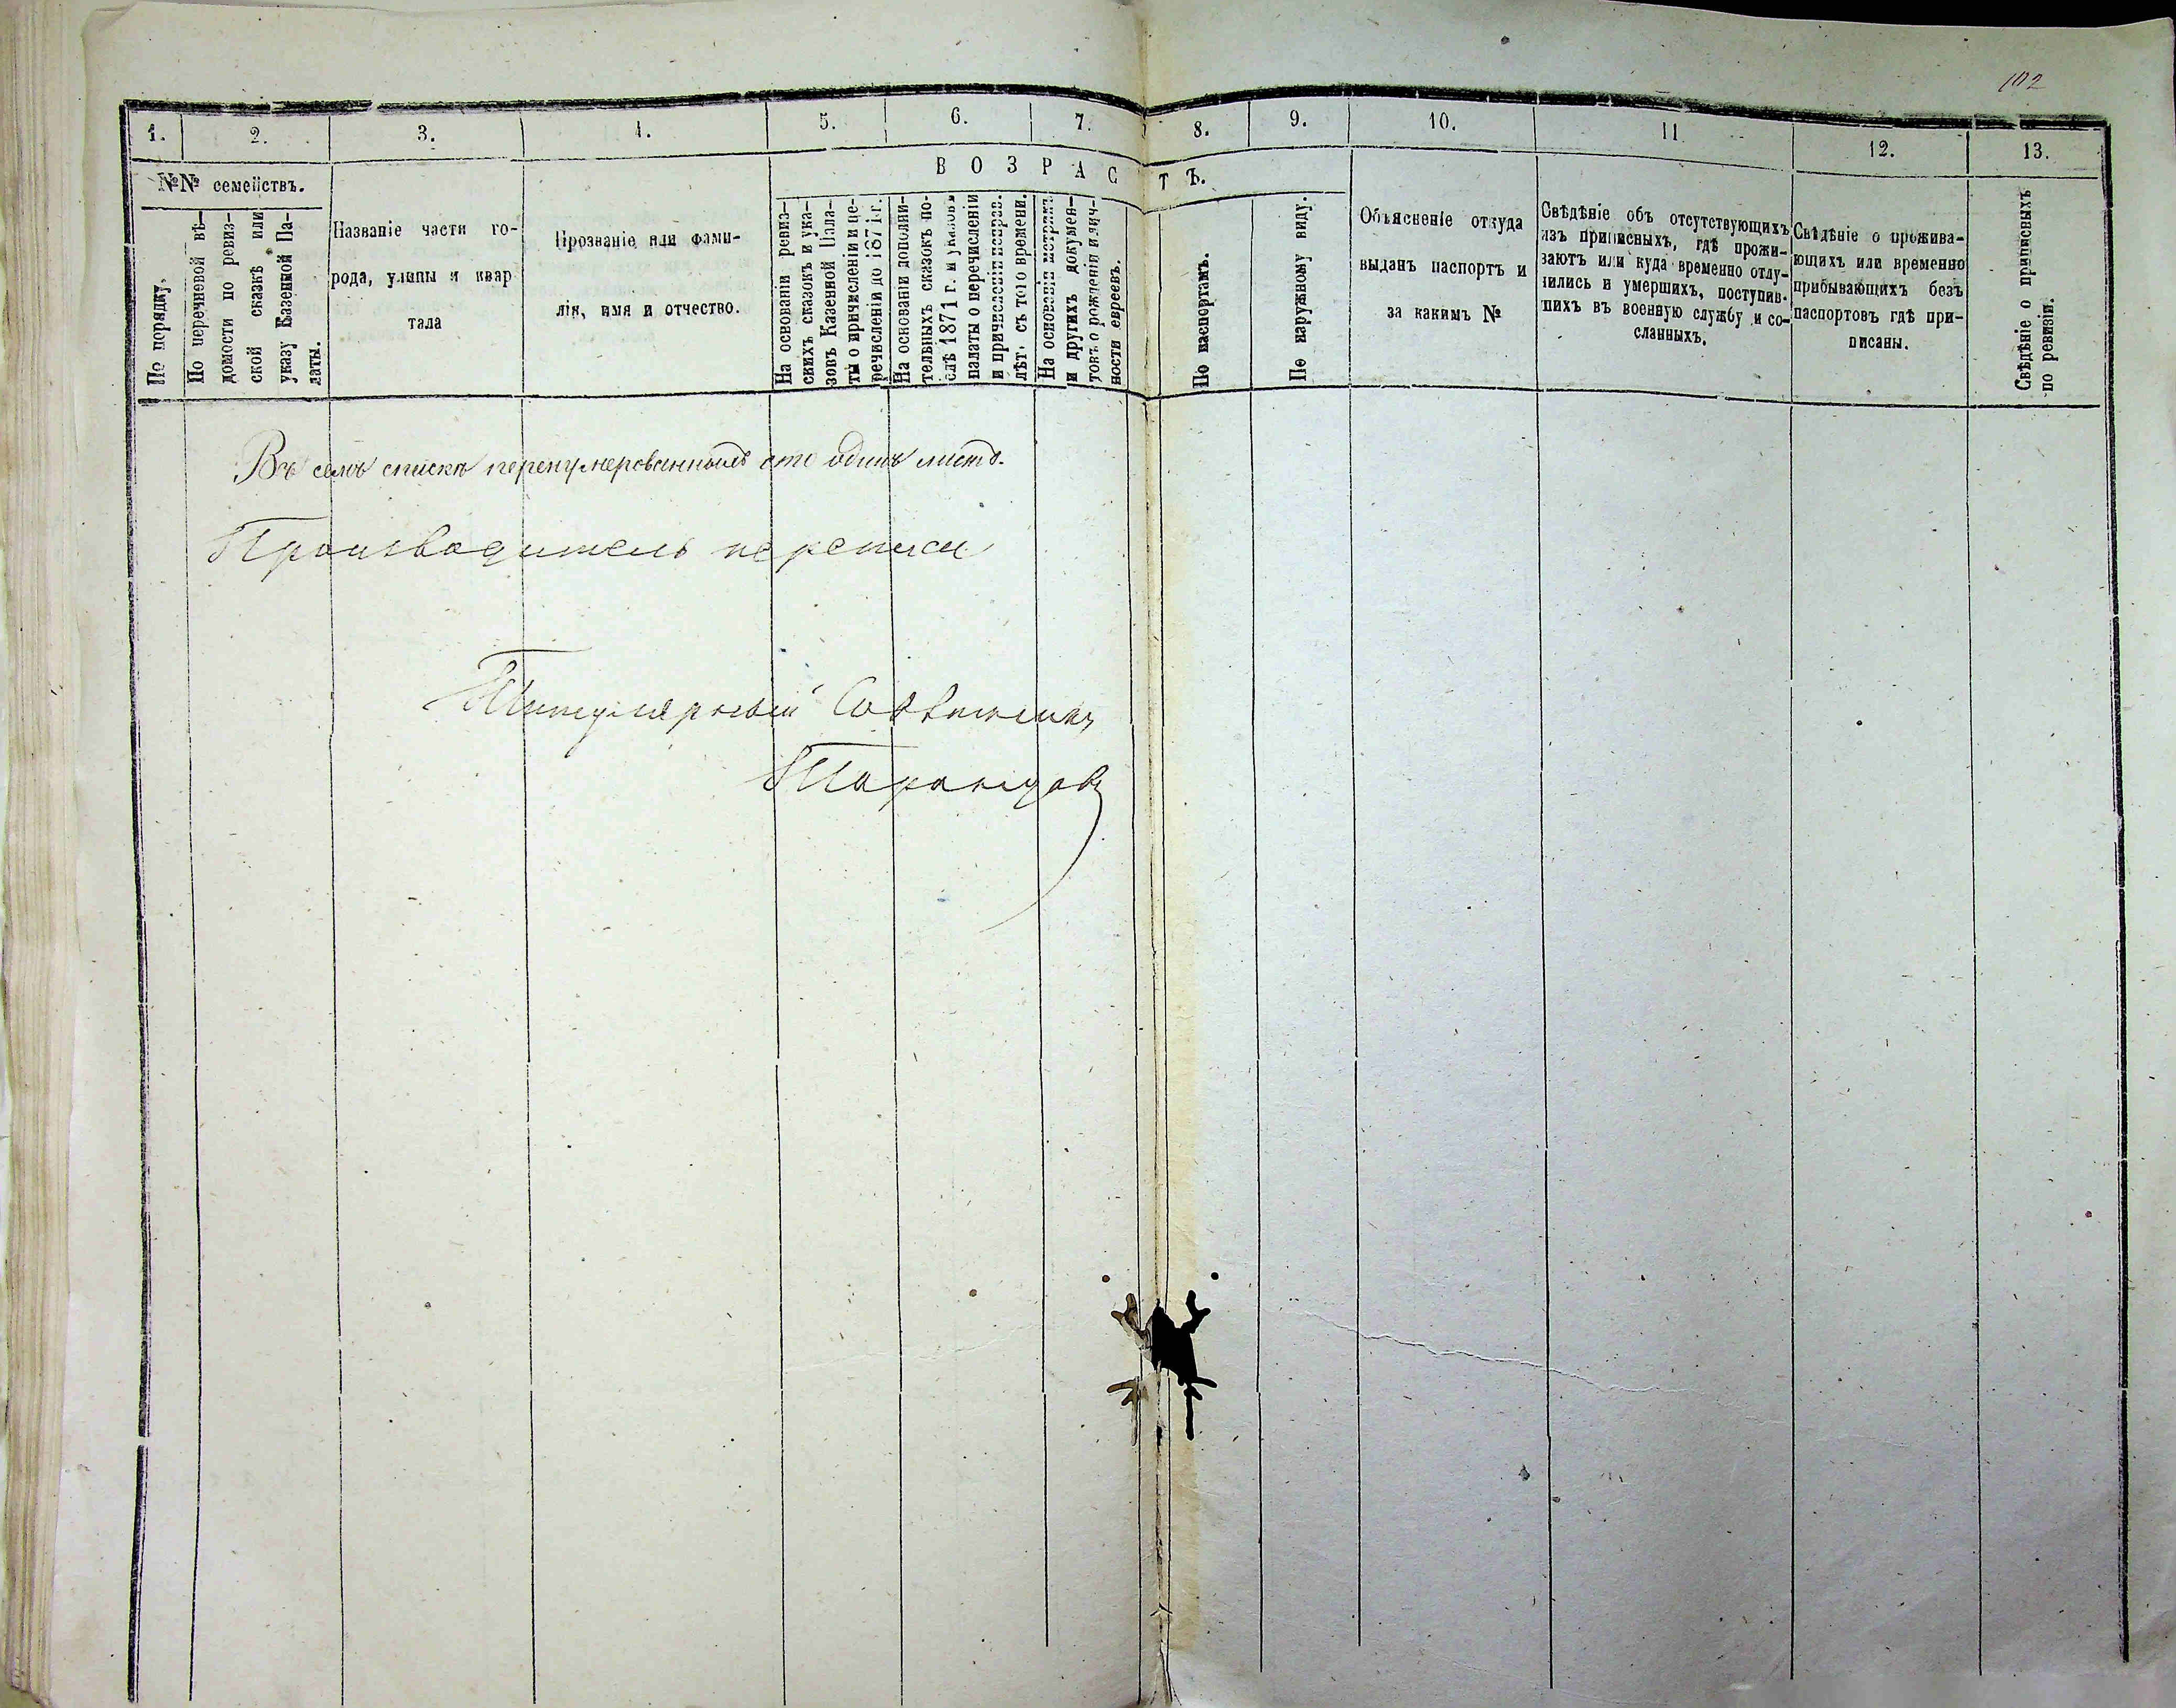 102
1. 2. 3. 4. 5. 6. 7. 8. 9. 10. 11. 12. 13.
№№ семействъ.
В О З Р А С Т Ъ.
По порядку.
По перечневой вѣ-
домости по ревиз-
ской сказкѣ или
указу Казенной Па-
латы.
Названіе части го-
рода, улицы и квар
тала
Прозваніе или фами-
лія, имя и отчество.
На основаніи ревиз-
скихъ сказокъ и ука-
зовъ Казенной Пала-
ты о причисленіи и пе-
речисленіи до 1871 г.
На основаніи дополни-
тельныхъ сказокъ по-
слѣ 1871 г. и указовъ
палаты о перечисленіи
и причисленіи исправ.
лѣт. съ того времени.
На основаніи метрикъ
и другихъ докумен-
товъ о рожденіи и лич-
ности евреевъ.
По паспортамъ.
По наружному виду.
Объясненіе откуда
выданъ паспортъ и
за какимъ №
Свѣдѣніе объ отсутствующихъ
изъ приписныхъ, гдѣ прожи-
ваютъ или куда временно отлу-
чились и умершихъ, поступив-
шихъ въ военную службу и со-
сланныхъ.
Свѣдѣніе о прожива-
ющихъ или временно
прибывающихъ безъ
паспортовъ гдѣ при-
писаны.
Свѣдѣніе о приписныхъ
по ревизіи.
Въ семъ списке перенумерованныхъ сто одинъ листъ.
Производитель переписи
Титулярный Совѣтникъ